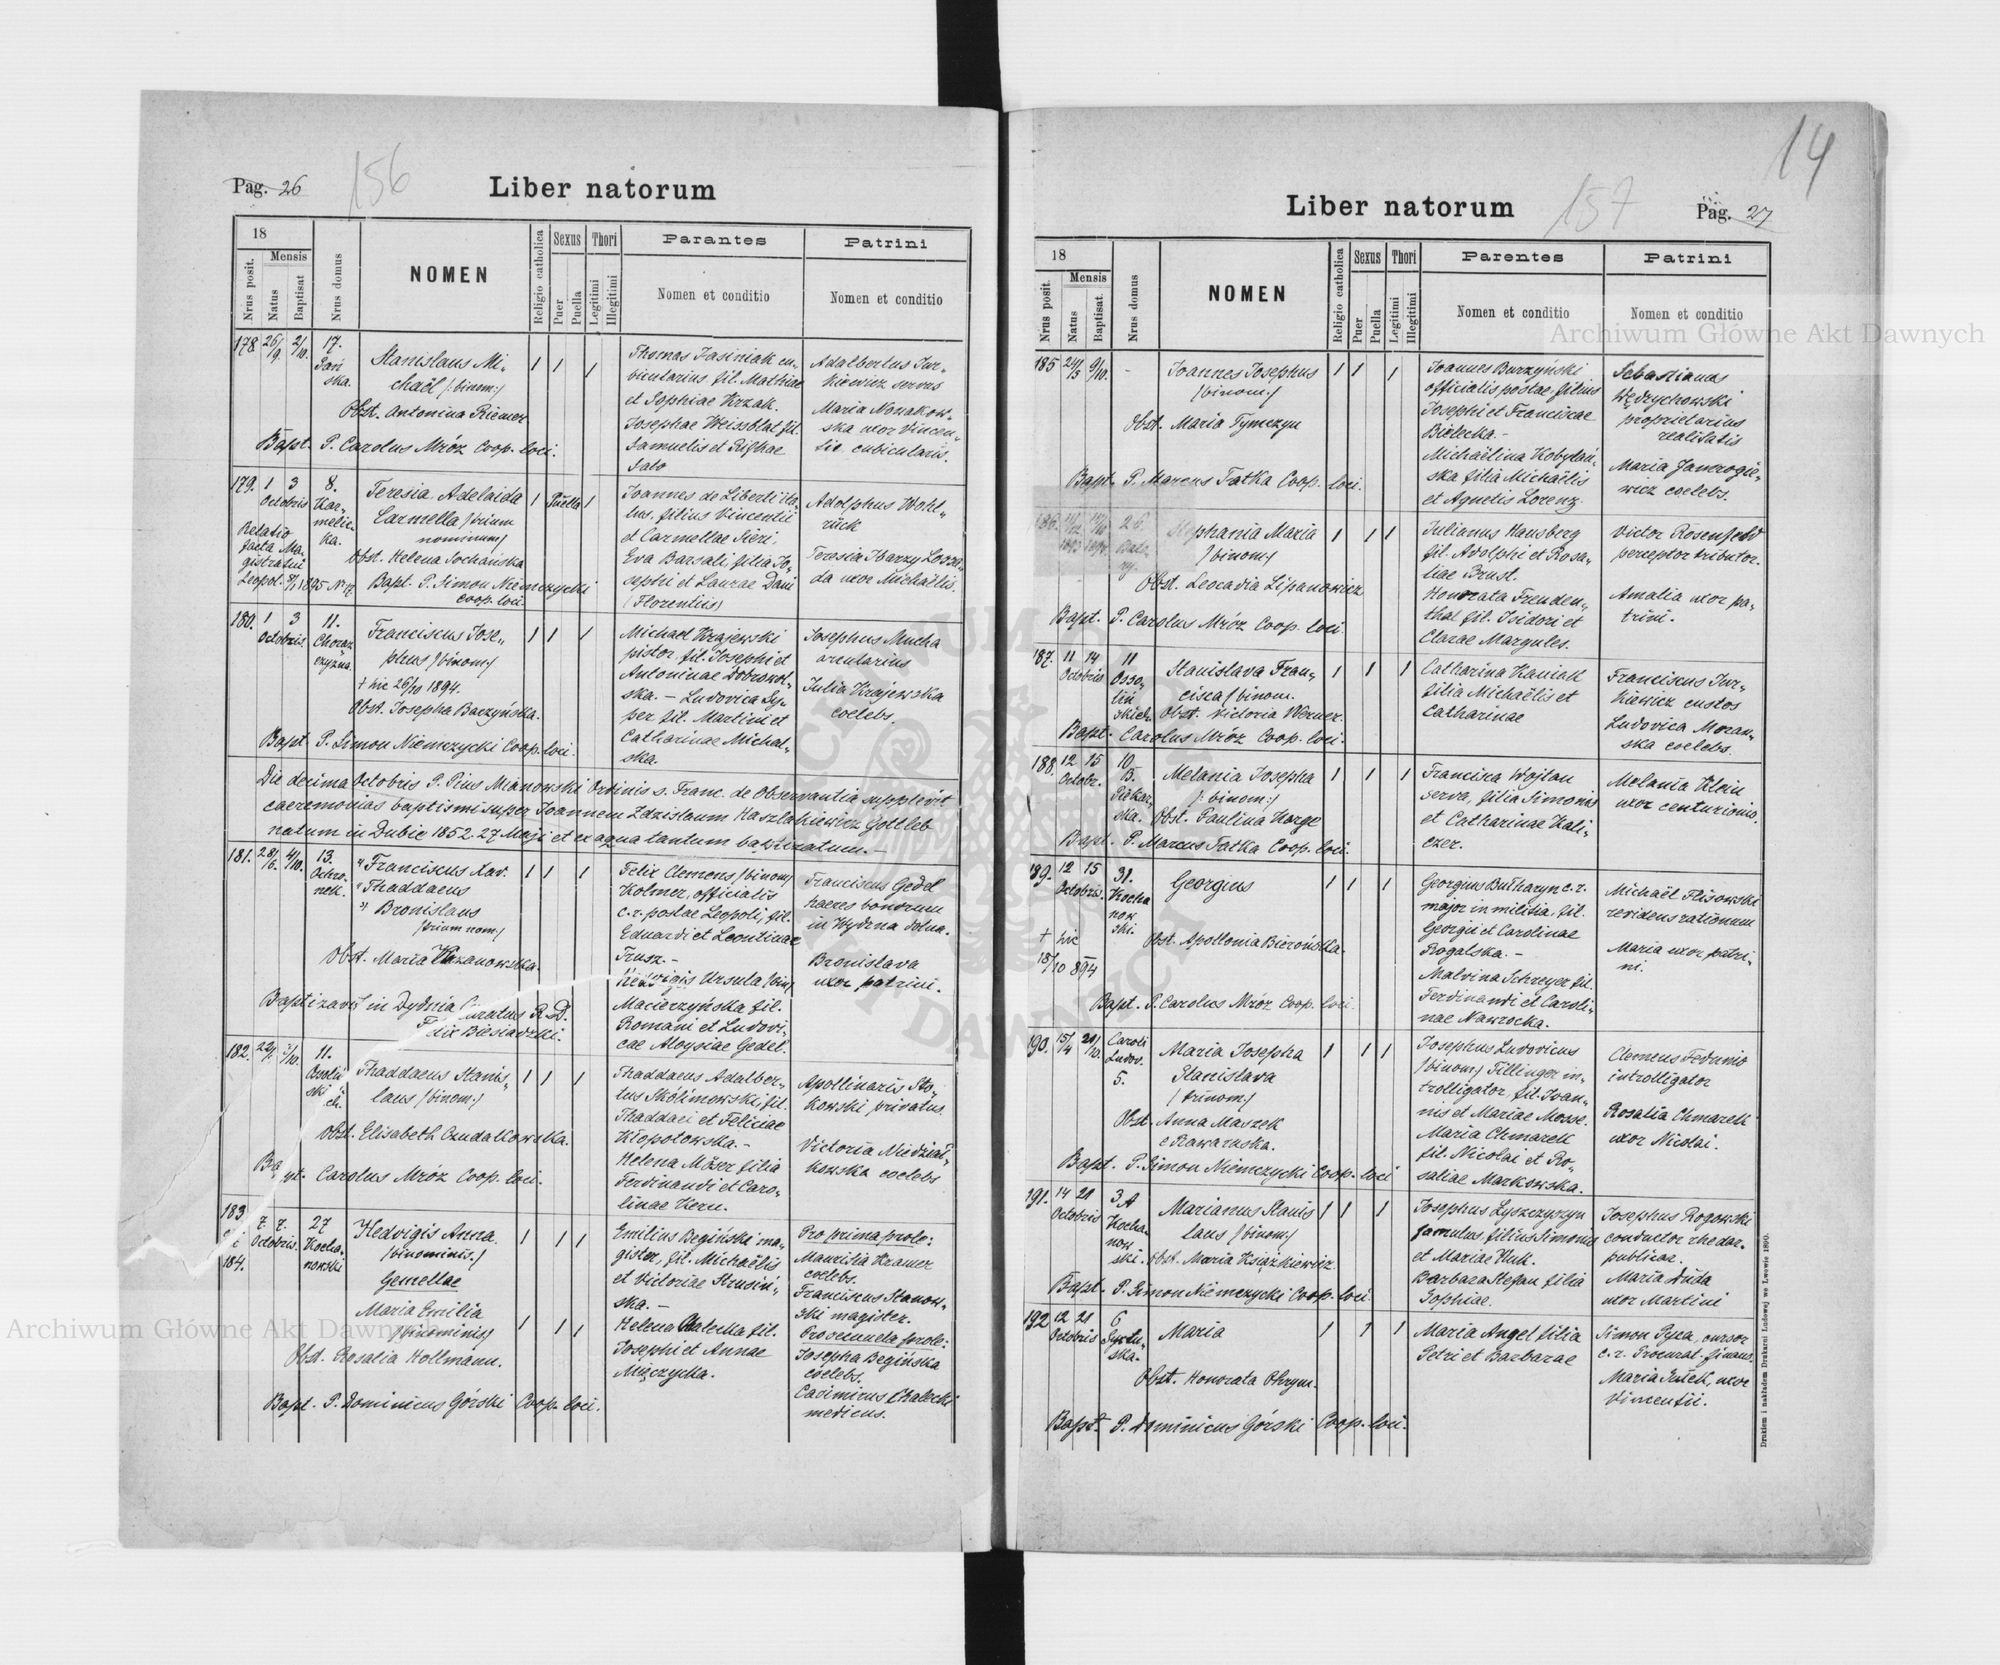 Pag. 26
156
Liber natorum
18
Nrus posit.
Mensis
Natus
Baptisat
Nrus domus
NOMEN
Religio catholica
Sexus
Puer
Puella
Thori
Legitimi
Illegitimi
Parantes
Nomen et conditio
Patrini
Nomen et conditio
178 26/9. 2/10. 17.
Pań
ska.
Stanislaus Mi-
chaël /:binom:/
Obst. Antonina Riemer
Bapt. P. Carolus Mróz Coop. loci.
Thomas Jasiniak cu-
bicularius fil. Mathiae
et Sophiae Krzak.
Josephae Weissblat fil.
Samuelis et
Salo
Adalbertus Jur-
kiewicz servus
Maria Nowakow-
ska uxor Vincen-
tii cubicularis.
179. 1 3 8.
Octobris
Kar-
melic-
ka.
Relatio
facta Ma-
gistratui
Leopol. 1895 Nr 17.
Teresia Adelaida
Carmella /trium
nominum/
Obst. Helena Sochańska
Bapt. P. Simon Niemczycki
coop. loci.
Puella
Joannes de Liberti ita-
lus, filius Vincentii
et Carmellae Sieri,
Eva Barsali, filia Jo-
sephi et Laurae Dani
(Florentiis)
Adolphus Wohl-
rück
Teresia
da uxor Michaëlis.
180. 1 3 11.
Octobris.
Chorąż
czyzna.
Franciscus Jose-
phus /binom/
+ hic 26/10 1894.
Obst. Josepha Baczyńska.
Bapt. P. Simon Niemczycki Coop. loci.
Michael Krajewski
pistor, fil. Josephi et
Antoninae Dobrowol-
ska. - Ludovica Sy-
per fil. Martini et
Catharinae Michal-
ska.
Josephus Mucha
arcularius
Julia Krajewska
coelebs.
Die decima Octobris P. Pius Mianowski Ordinis s. Franc. de Observantia supplevit
caeremonias baptismi super Joannem Zdzislaum Haszlakiewicz Gottleb
natum in Dubie 1852. 27 Maji et ex aqua tantum baptizatum.-
181. 28/6. 4/10. 13.
Ochro-
nek.
Franciscus Xav.
Thaddaeus
Bronislaus
/trium nom./
Obst. Maria Kazanowska.
Baptizavit in Dydnia Curatus R. D.
Felix Biesiadzki.
Felix Clemens /binom/
Holmer, officialis
c. r. postae Leopoli, fil.
Eduardi et Leontinae
Trusz.-
Hedvigis Ursula /bin/
Macierzyńska fil.
Romani et Ludovi-
cae Aloysiae Gedel.
Franciscus Gedel
haeres bonorum
in Wydrna dolna.
Bronislava
uxor patrini.
182. 11.
Ossoliń
ski
ch.
Thaddaeus Stanis-
laus /binom:/
Obst. Elisabeth Czudatkowska.
Bapt. Carolus Mróz Coop. loci.
Thaddaeus Adalber-
tus Skólimowski fil.
Thaddaei et Feliciae
Kłopotowska.-
Helena Möser filia
Ferdinandi et Caro-
linae Kern.
Apollinaris Sto-
kowski privatus.
Victoria Miedział-
kowska coelebs
183
et
184.
7. 7. 27
Octobris.
Kocha-
nowski
Hedvigis Anna
/binominis:/
Gemellae
Maria Emilia
/binominis/
Obst. Rosalia Hollmann.
Bapt. P. Dominicus Górski Coop. loci.
Emilius Begiński ma-
gister, fil. Michaëlis
et Victoriae Strusiń-
ska.-
Helena Chalecka fil.
Josephi et Annae
Mięczycka.
Pro prima prole:
Mauritia Kramer
coelebs.
Franciscus Stanow-
ski magister.
Pro secunda prole:
Josepha Begińska
coelebs.
Casimirus Chalecki
medicus.
14
Liber natorum
157
Pag. 27
18
Nrus posit.
Mensis
Natus
Baptisat.
Nrus domus
NOMEN
Religio catholica
Sexus
Puer
Puella
Thori
Legitimi
Illegitimi
Parentes
Nomen et conditio
Patrini
Nomen et conditio
185 24/5 9/10. -
Joannes Josephus
/binom:/
Obst. Maria Tymczyn
Bapt. P. Marcus Fatka Coop. loci.
Joannes Burzyński
officialis postae, filius
Josephi et Franciscae
Bielecka.-
Michaëlina Kobylań-
ska filia Michaëlis
et Agnetis Lorenz
Sebastianus
Wędrychowski
proprietarius
realitatis
Maria Jamrogie-
wicz coelebs.
186. 26.
Bato-
ry.
Stephania Maria
/binom:/
Obst. Leocadia Lipanowicz
Bapt. P. Carolus Mróz Coop. loci.
Julianus Hausberg
fil. Adolphi et Rosa-
liae Brust.
Honorata Freuden-
thal fil. Isidori et
Clarae Margules.
Victor Rosenfeld
perceptor tributor.
Amalia uxor pa-
trini.
187. 11 14 11
Octobris
Osso-
liń
skich
Stanislava Fran-
cisca /binom.
Obst. Victoria Werner.
Bapt. Carolus Mróz Coop. loci.
Catharina Kaniak
filia Michaëlis et
Catharinae
Franciscus Jur-
kiewicz custos
Ludovica Moran-
ska coelebs.
188. 12 15 10.
Octobr. B.
Piekar-
ska.
Melania Josepha
/:binom:/
Obst. Paulina Korge
Bapt. P. Marcus Fatka Coop. loci.
Francisca Wojtan
serva, filia Simonis
et Catharinae Kali-
czer.
Melania Klein
uxor centurionis.
189. 12 15 31.
Octobris.
Kocha
now
ski.
+ hic
15/10 894
Georgius
Obst. Apollonia Bierońska.
Bapt. P. Carolus Mróz Coop. loci.
Georgius Butharyn c. r.
major in militia, fil.
Georgii et Carolinae
Rogalska.-
Malvina Schreyer fil.
Ferdinandi et Caroli-
nae Nawrocka.
Michaël Flisowski
revidens rationum
Maria uxor patri-
ni.
190. 15/4 20/10. Caroli
Ludov.
5.
Maria Josepha
Stanislava
/trinom:/
Obst. Anna Maszek
e Rawaruska.
Bapt. P. Simon Niemczycki Coop. loci
Josephus Ludovicus
/binom/ Fillinger in-
trolligator, fil. Joan-
nis et Mariae Mosse.
Maria Chmarek
fil. Nicolai et Ro-
saliae Markowska.
Clemens Fedunio
introlligator
Rosalia Chmarek
uxor Nicolai.
191. 14 21 3 A
Octobris
Kocha-
now
ski.
Marianus Stanis
laus /binom:/
Obst. Maria Książkiewicz.
Bapt. P. Simon Niemczycki Coop. loci.
Josephus Łyszczyszyn
famulus, filius Simonis
et Mariae Huk.
Barbara Stefan filia
Sophiae.
Josephus Rogowski
conductor rhedar.
publicar.
Maria Duda
uxor Martini
192 12 21 6
Octobris
Syxtu-
ska.
Maria
Obst. Honorata Ohrym.
Bapt. P. Dominicus Górski Coop. loci.
Maria Angel filia
Petri et Barbarae
Simon Pyca, cursor
c. r. Procurat. finans.
Maria Jułek, uxor
Vincentii.
Drukiem i nakładem Drukarni Ludowej we Lwowie 1890.
Archiwum Główne Akt Dawnych
Archiwum Główne Akt Dawnych
ARCHIWUM GŁÓWNE AKT DAWNYCH